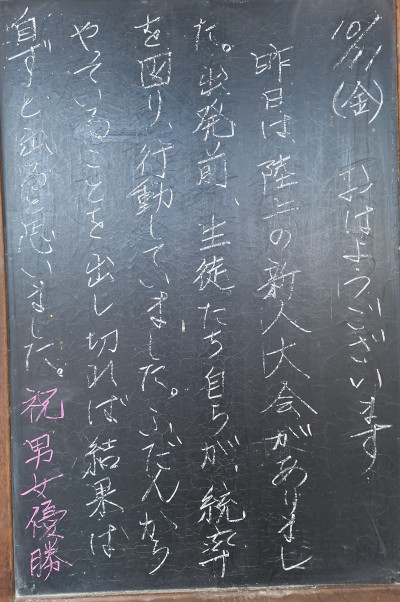 10/11(金) おはようございます
昨日は、陸上の新人大会がありまし
た。出発前、生徒たち自らが、統率
を図り、行動していました。ふだんから
やっていることを出し切れば結果は
自ずと出ると思いました。祝 男女優勝